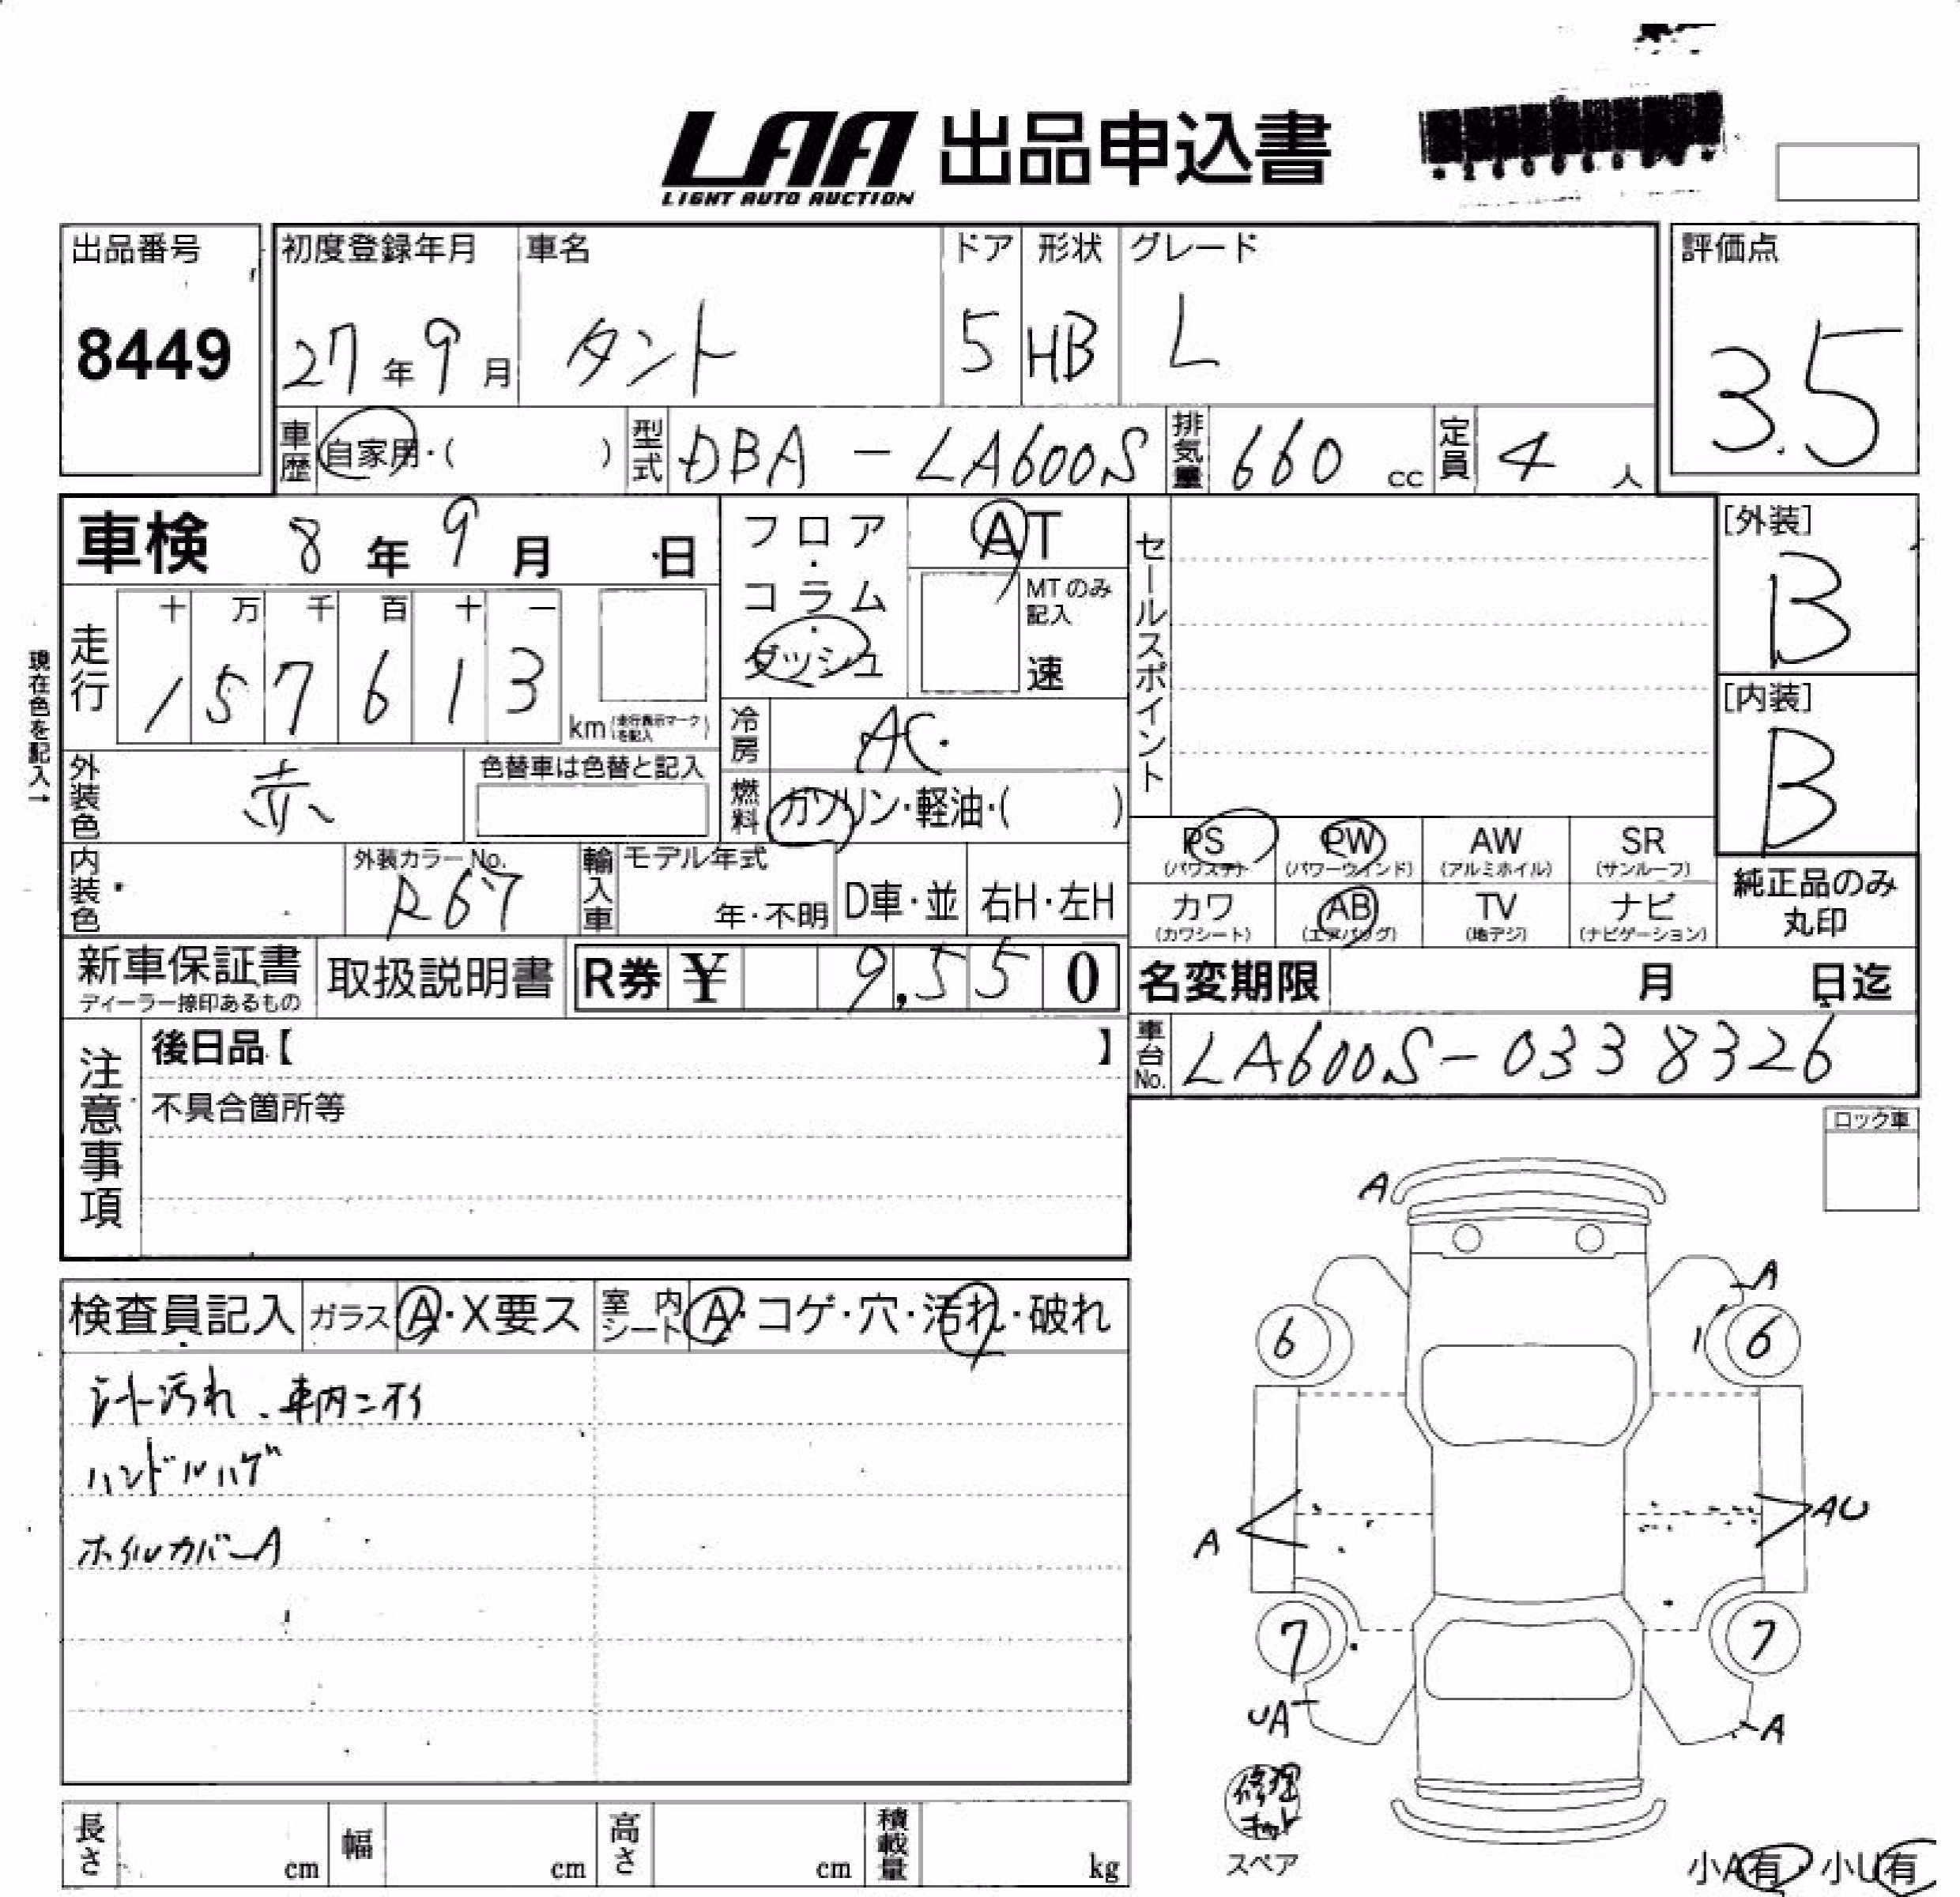 LAA 出品申込書
LIGHT AUTO AUCTION
出品番号
8449
初度登録年月
27年9月
車名
タント
ドア
5
形状
HB
グレード
L
評価点
3.5
車歴
自家用・( )
型式
DBA-LA600S
排気量
660 cc
定員
4 人
車検 8年9月 日
フロア・コラム・ダッシュ
AT
MTのみ記入
速
セールスポイント
[外装]
B
[内装]
B
現在色を記入→
走行
十 万 千 百 十 一
1 5 7 6 1 3
km (走行表示マークを記入)
冷房
AC
外装色
赤
色替車は色替と記入
燃料
ガソリン・軽油・( )
内装色
外装カラーNo.
R67
輸入車
モデル年式
年・不明
D車・並
右H・左H
PS (パワステ)
PW (パワーウインド)
AW (アルミホイル)
SR (サンルーフ)
カワ (カワシート)
AB (エアバッグ)
TV (地デジ)
ナビ (ナビゲーション)
純正品のみ丸印
新車保証書
ディーラー捺印あるもの
取扱説明書
R券 ¥ 9,550
名変期限 月 日迄
車台No.
LA600S-0338326
注意事項
後日品【 】
不具合箇所等
ロック車
検査員記入
ガラス
A・X要ス
室内シート
A・コゲ・穴・汚れ・破れ
シート汚れ、車内ニオイ
ハンドルハゲ
ホイルカバーA
A
A
6
6
A
AU
7
7
UA
A
修理キット
スペア
小A有・小U有
長さ cm
幅 cm
高さ cm
積載量 kg